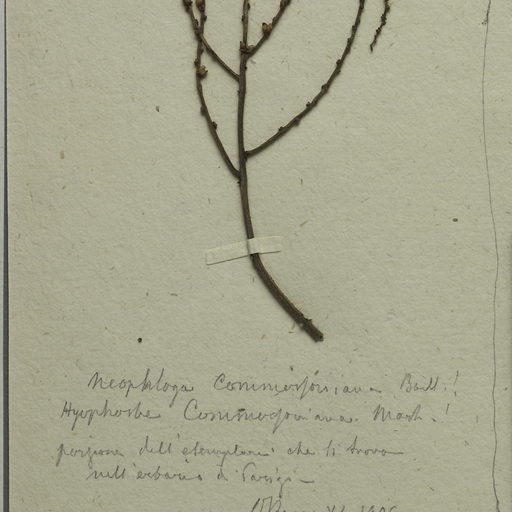 Neophloga Commersoniana Baill.!
Hyophorbe Commersoniana Mart.!
porzione dell'esemplare che si trova
nell'erbario di Parigi